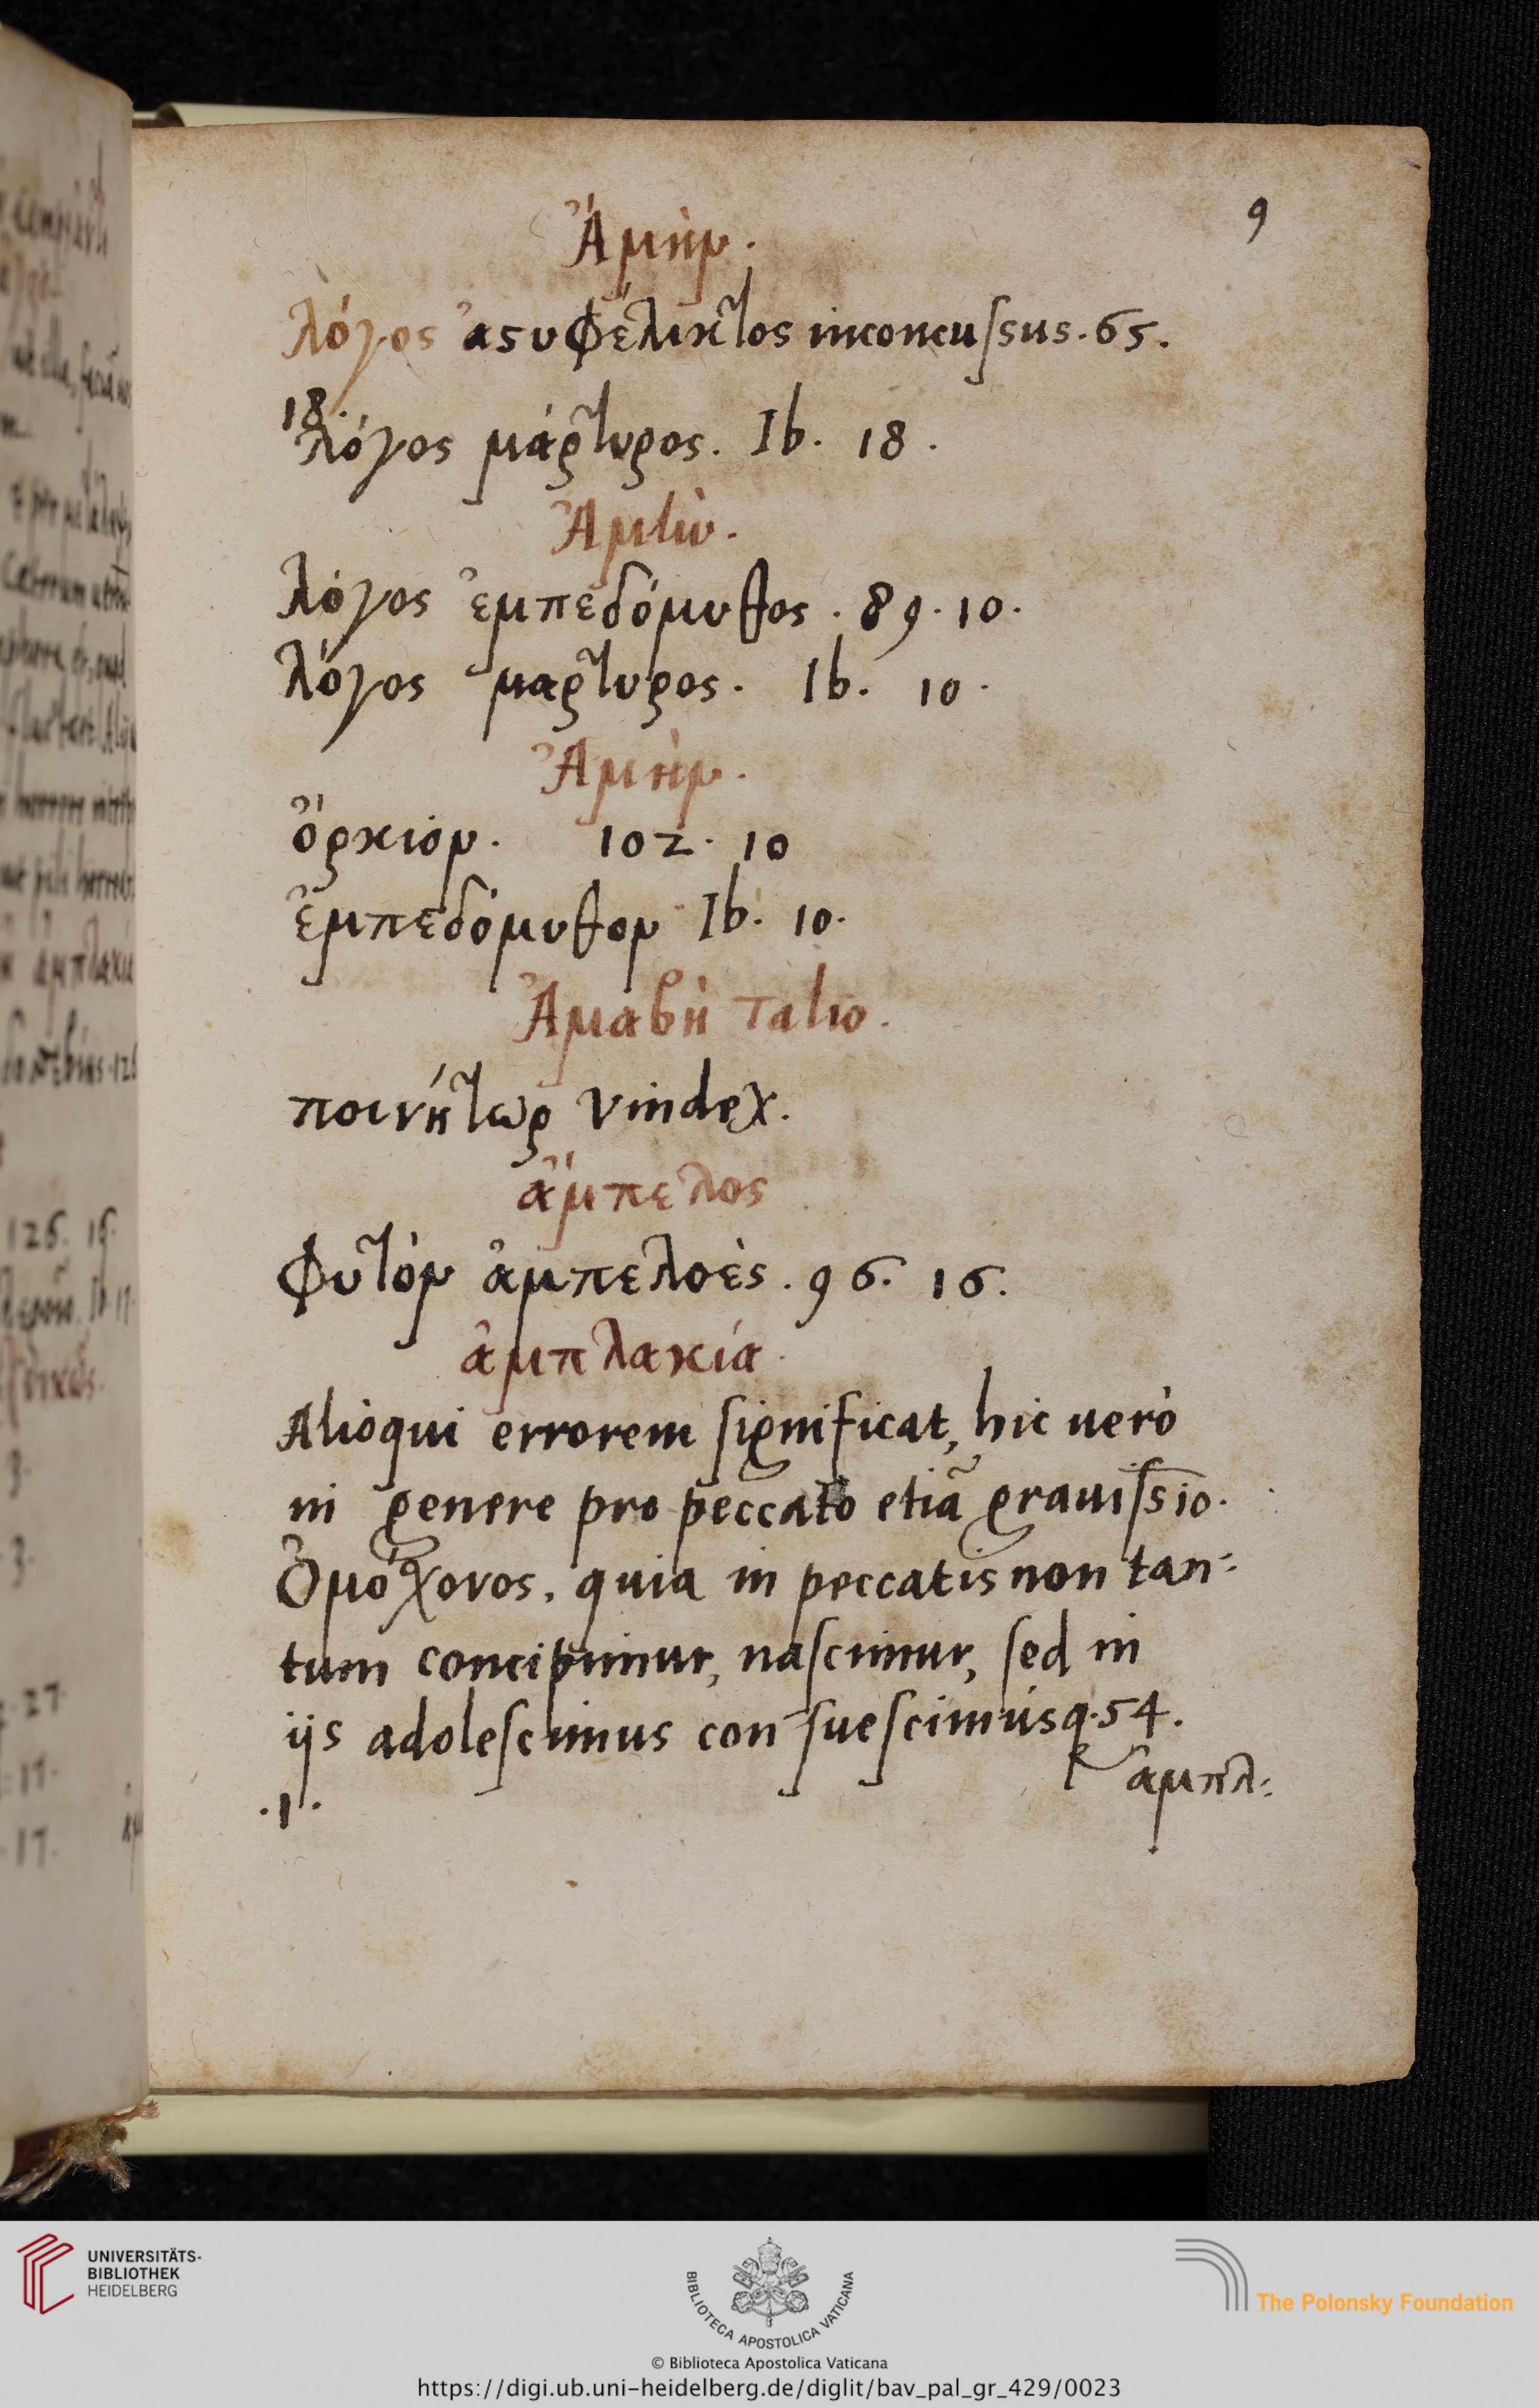 9
Ἀμὴν.
λόγος ἀςυφέλικτος inconcussus. 65.
18.
λόγος μάρτυρος. Ib. 18.
Ἀμὴν.
λόγος ἐμπεδόμυθος. 89. 10.
λόγος μαρτυρος. Ib. 10.
Ἀμὴν.
ὅρκιόν. 102. 10
ἐμπεδόμυθον Ib. 10.
Ἀμαβὴ Talio.
ποινήτωρ Vindex.
ἄμπελος
Φυτόν ἀμπελοὲς. 96. 16.
ἀμπλακία.
Alioqui errorem significat, hic uerò
in genere pro peccato etiã grauissio.
Ὁμόχονος. quia in peccatis non tan:
tum concipimur, nascimur, sed in
ijs adolescimus consuescimúsq. 54.
.1.
ἀμπλ:
UNIVERSITÄTS-
BIBLIOTHEK
HEIDELBERG
BIBLIOTECA APOSTOLICA VATICANA
The Polonsky Foundation
© Biblioteca Apostolica Vaticana
https://digi.ub.uni-heidelberg.de/diglit/bav_pal_gr_429/0023